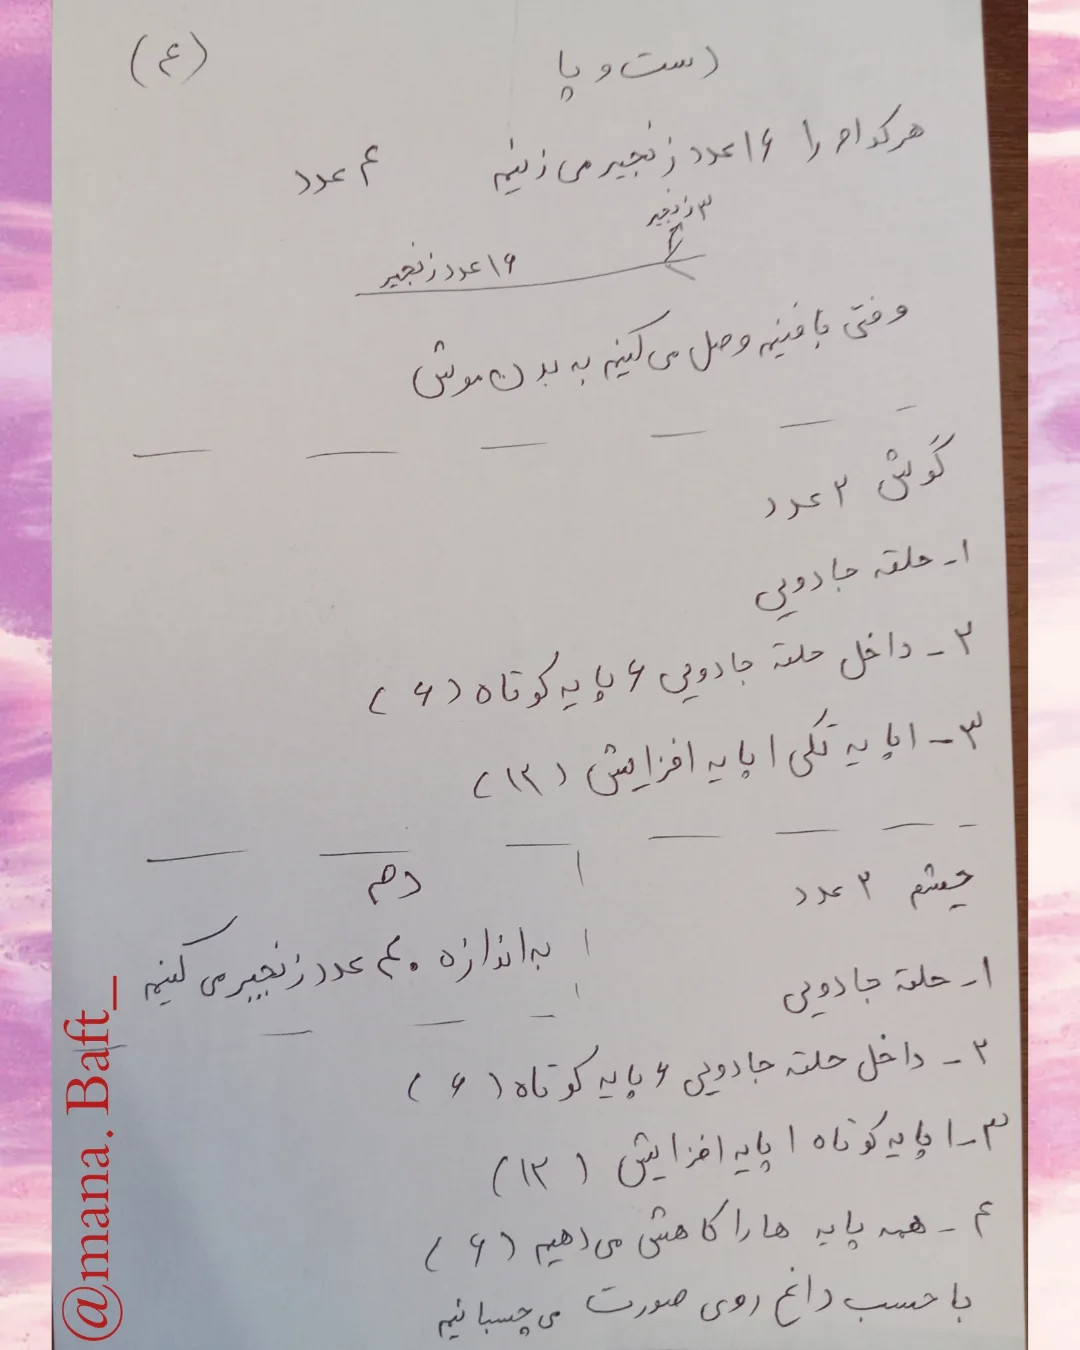 (۴)
دست و پا
هرکدام را ۱۶ عدد زنجیر می زنیم ۴ عدد
۳ زنجیر
۱۶ عدد زنجیر
وقتی بافتیم وصل می کنیم به بدن موش
گوش ۲ عدد
۱- حلقه جادویی
۲- داخل حلقه جادویی ۶ پایه کوتاه (۶)
۳- ۱ پایه تکی ۱ پایه افزایش (۱۲)
چشم ۲ عدد
۱- حلقه جادویی
۲- داخل حلقه جادویی ۶ پایه کوتاه (۶)
۳- ۱ پایه کوتاه ۱ پایه افزایش (۱۲)
۴- همه پایه ها را کاهش می دهیم (۶)
با حسب داغ روی صورت می چسبانیم
دم
به اندازه ۴۰ عدد زنجیر می کنیم
@mana. Baft_